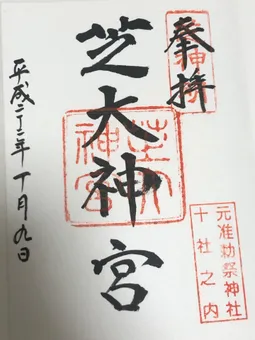 奉拝
元准勅祭神社
十社之内
芝大神宮
芝大
神宮
平成二十二年十月九日